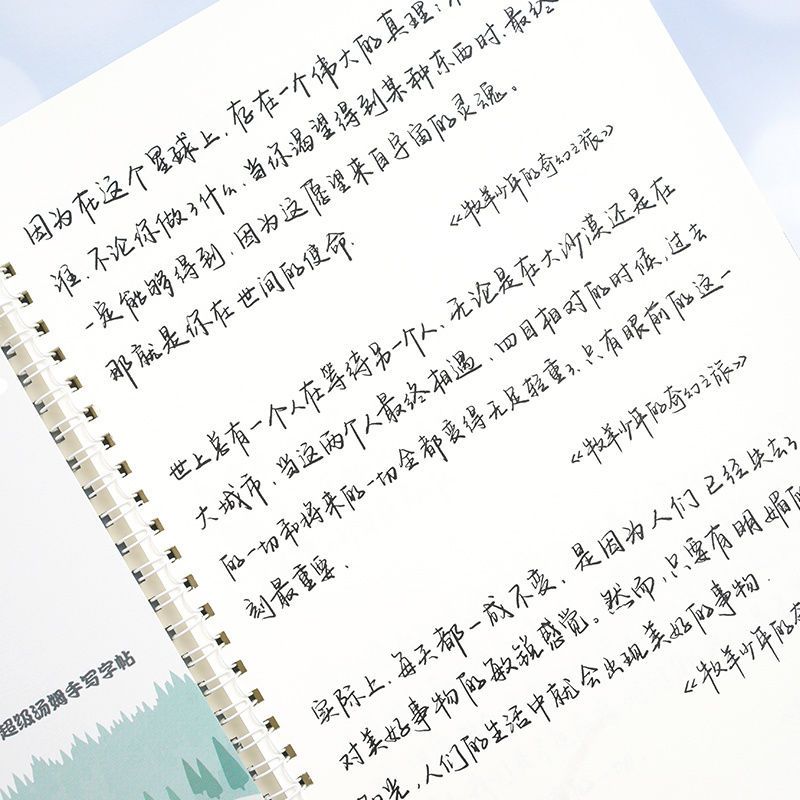 因为在这个星球上，存在一个伟大的真理：不
谁，不论你做了什么，当你渴望得到某种东西时，最终
一定能够得到，因为这愿望来自宇宙的灵魂。
那就是你在世间的使命.
《牧羊少年的奇幻之旅》
世上总有一个人在等待另一个人，无论是在大沙漠还是在
大城市，当这两个人最终相遇，四目相对的时候，过去
的一切和将来的一切全都变得无足轻重了，只有眼前的这一
刻最重要.
《牧羊少年的奇幻之旅》
实际上，每天都一成不变，是因为人们已经失去了
对美好事物的敏锐感觉。然而，只要有明媚的
阳光，人们的生活中就会出现美好的事物.
《牧羊少年的奇
超级汤姆手写字帖